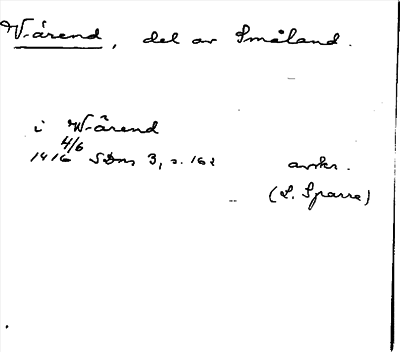 Wärend, del av Småland.
i Wärend
4/6
1416 SDns 3, s. 162 avskr.
(L. Sparre)